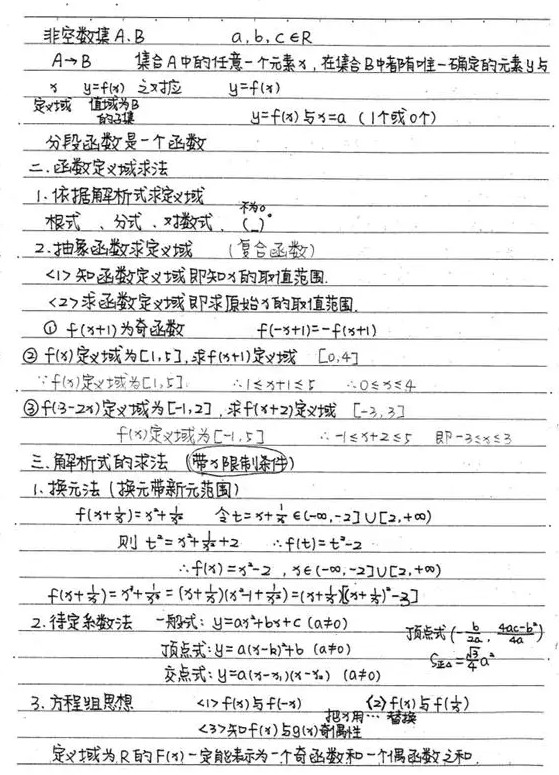 非空数集A、B a,b,c∈R
A→B 集合A中的任意一个元素x,在集合B中都有唯一确定的元素y与
x y=f(x) 之对应 y=f(x)
定义域 值域为B的子集 y=f(x)与x=a (1个或0个)
分段函数是一个函数
二.函数定义域求法
1.依据解析式求定义域
根式、分式、对数式、(_)⁰ 不为0
2.抽象函数求定义域 (复合函数)
<1>知函数定义域即知x的取值范围.
<2>求函数定义域即求原始x的取值范围.
① f(x+1)为奇函数 f(-x+1)=-f(x+1)
② f(x)定义域为[1,5],求f(x+1)定义域 [0,4]
∵f(x)定义域为[1,5] ∴1≤x+1≤5 ∴0≤x≤4
③f(3-2x)定义域为[-1,2],求f(x+2)定义域 [-3,3]
f(x)定义域为[-1,5] ∴-1≤x+2≤5 即-3≤x≤3
三.解析式的求法 (带x限制条件)
1.换元法(换元带新元范围)
f(x+1/x)=x²+1/x² 令t=x+1/x∈(-∞,-2]∪[2,+∞)
则 t²=x²+1/x²+2 ∴f(t)=t²-2
∴f(x)=x²-2 ,x∈(-∞,-2]∪[2,+∞)
f(x+1/x)=x³+1/x³=(x+1/x)(x²-1+1/x²)=(x+1/x)[(x+1/x)²-3]
2.待定系数法 一般式: y=ax²+bx+c (a≠0)
顶点式(-b/2a, 4ac-b²/4a)
顶点式: y=a(x-k)²+b (a≠0)
S正△=√3/4 a²
交点式: y=a(x-x₁)(x-x₂) (a≠0)
3.方程组思想 <1>f(x)与f(-x) <2>f(x)与f(1/x)
把x用…替换
<3>知f(x)与g(x)奇偶性
定义域为R的F(x)一定能表示为一个奇函数和一个偶函数之和.